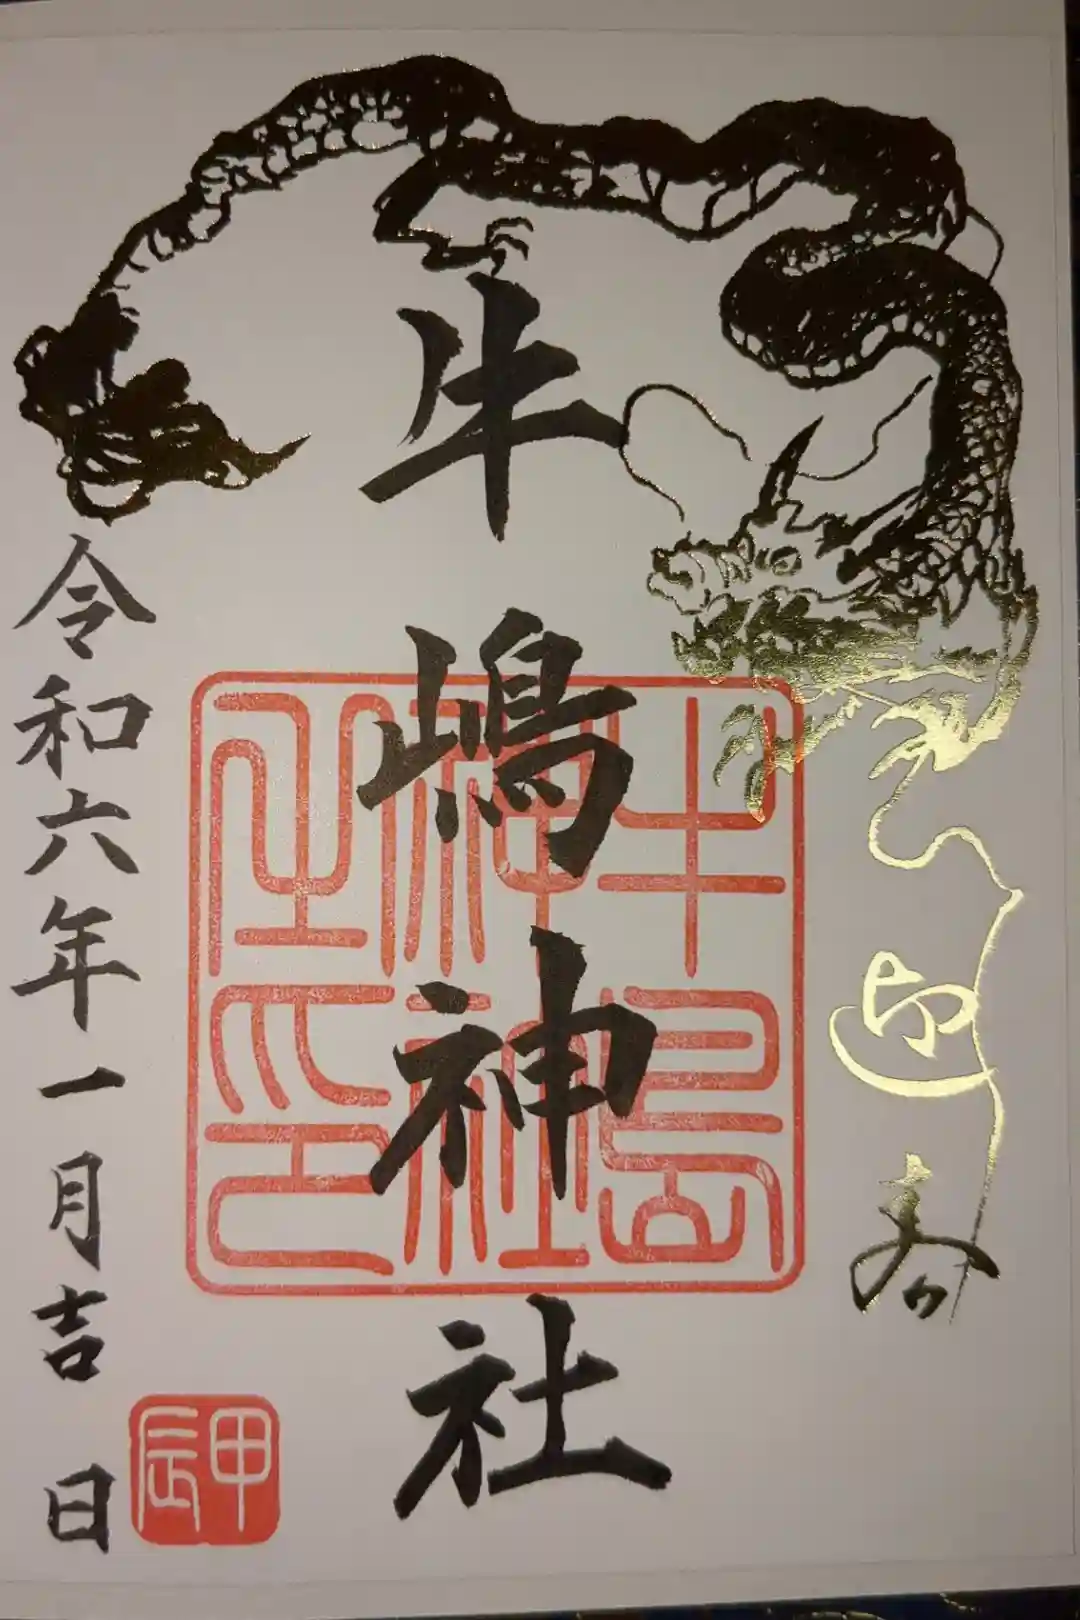 牛嶋神社
令和六年一月吉日
甲辰
牛嶋
神社
之印